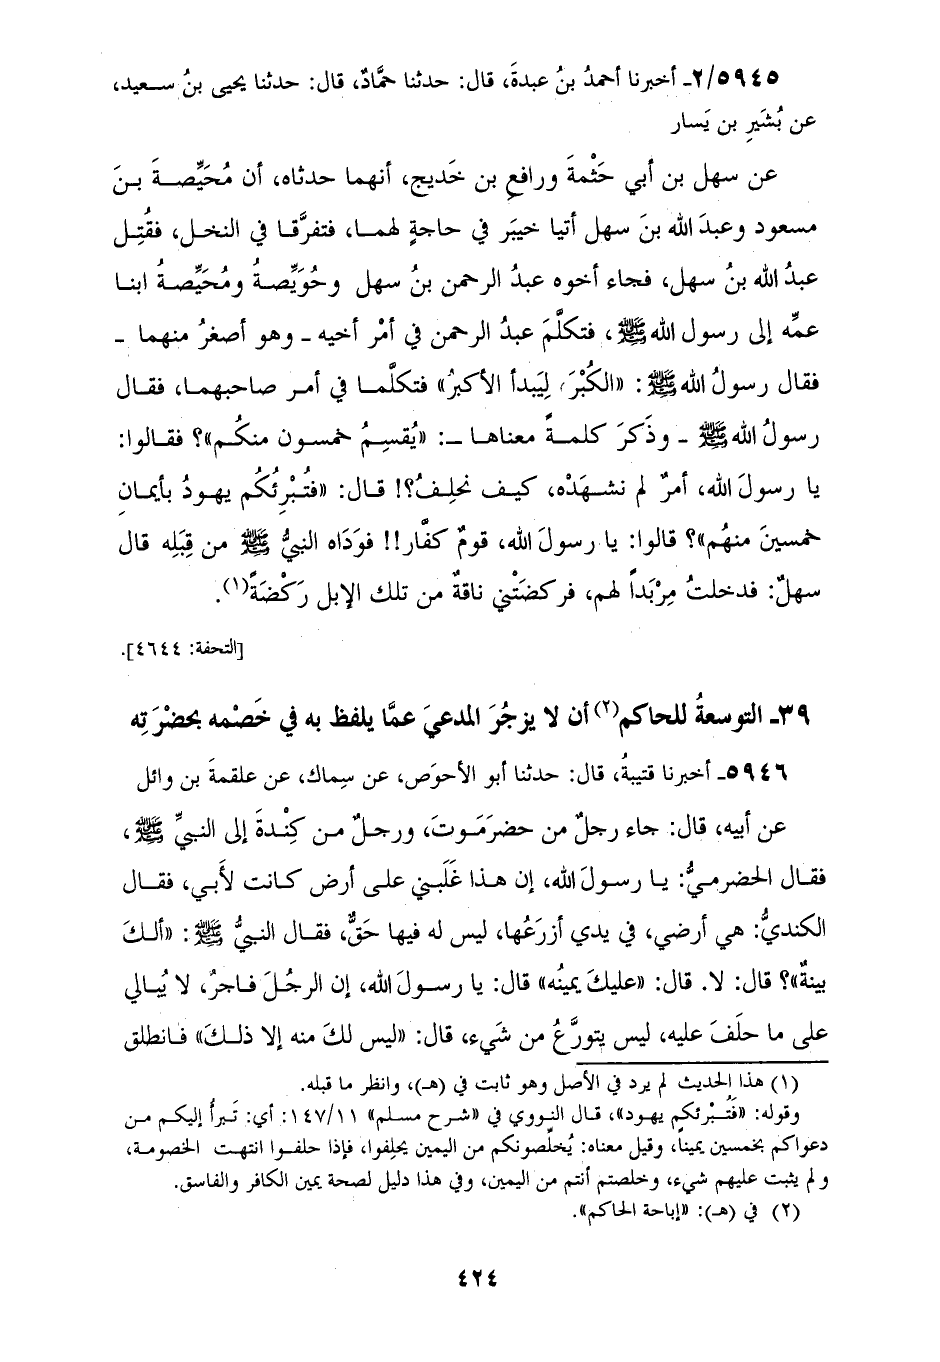 ٢/٥٩٤٥ـ أخبرنا أحمدُ بنُ عبدةَ، قال: حدثنا حمَّادٌ، قال: حدثنا يحيى بنُ سعيد،
عن بُشَيرِ بن يَسار
عن سهل بن أبي حَثْمةَ ورافعِ بن خَديج، أنهما حدثاه، أن مُحَيِّصةَ بنَ
مسعود وعبدَ الله بنَ سهل أتيا خيبَر في حاجةٍ لهما، فتفرَّقا في النخل، فقُتِل
عبدُ الله بنُ سهل، فجاء أخوه عبدُ الرحمن بنُ سهل وحُوَيِّصةُ ومُحَيِّصةُ ابنا
عمِّه إلى رسول الله ﷺ، فتكلَّمَ عبدُ الرحمن في أمْر أخيه ـ وهو أصغرُ منهما ـ
فقال رسولُ الله ﷺ: «الكُبْرَ، لِيَبدأ الأكبرُ» فتكلَّما في أمر صاحبهما، فقال
رسولُ الله ﷺ ـ وذَكرَ كلمةً معناها ـ: «يُقسِمُ خمسون منكُم»؟ فقالوا:
يا رسولَ الله، أمرٌ لم نشهَدْه، كيف نحلِفُ؟! قال: «فتُبْرِئُكُم يهودُ بأيمانِ
خمسينَ منهُم»؟ قالوا: يا رسولَ الله، قومٌ كفَّار!! فوَدَاه النبيُّ ﷺ من قِبَلِه قال
سهلٌ: فدخلتُ مِرْبَداً لهم، فركضَتْني ناقةٌ من تلك الإبل رَكْضَةً(١).
[التحفة: ٤٦٤٤].
٣٩ـ التوسعةُ للحاكم(٢) أن لا يزجُرَ المدعيَ عمَّا يلفظ به في خَصْمه بحضْرَتِه
٥٩٤٦ـ أخبرنا قتيبةُ، قال: حدثنا أبو الأحوَص، عن سِماك، عن علقمةَ بن وائل
عن أبيه، قال: جاء رجلٌ من حضرَمَوتَ، ورجلٌ من كِنْدةَ إلى النبيِّ ﷺ،
فقال الحضرميُّ: يا رسولَ الله، إن هذا غَلَبَني على أرض كانت لأَبي، فقال
الكنديُّ: هي أرضي، في يدي أزرَعُها، ليس له فيها حَقٌّ، فقال النبيُّ ﷺ: «ألكَ
بينةٌ»؟ قال: لا. قال: «عليكَ يمينُه» قال: يا رسولَ الله، إن الرجُلَ فاجرٌ، لا يُبالي
على ما حلَفَ عليه، ليس يتورَّعُ من شَيء، قال: «ليس لكَ منه إلا ذلكَ» فانطلق
(١) هذا الحديث لم يرد في الأصل وهو ثابت في (هـ)، وانظر ما قبله.
وقوله: «فَتُبْرئكم يهود»، قال النووي في «شرح مسلم» ١٤٧/١١: أي: تَبرأُ إليكم من
دعواكم بخمسين يميناً، وقيل معناه: يُخلِّصونكم من اليمين يحلِفوا، فإذا حلفوا انتهت الخصومة،
ولم يثبت عليهم شيء، وخلصتم أنتم من اليمين، وفي هذا دليل لصحة يمين الكافر والفاسق.
(٢) في (هـ): «إباحة الحاكم».
٤٢٤